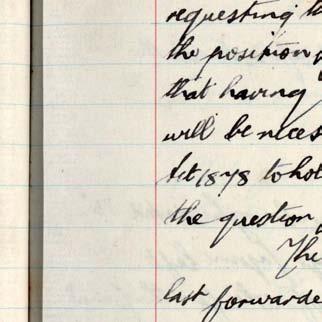 requesting
the position
that having
will be neces
Act 1878 to hol
the question
The
last forwarde